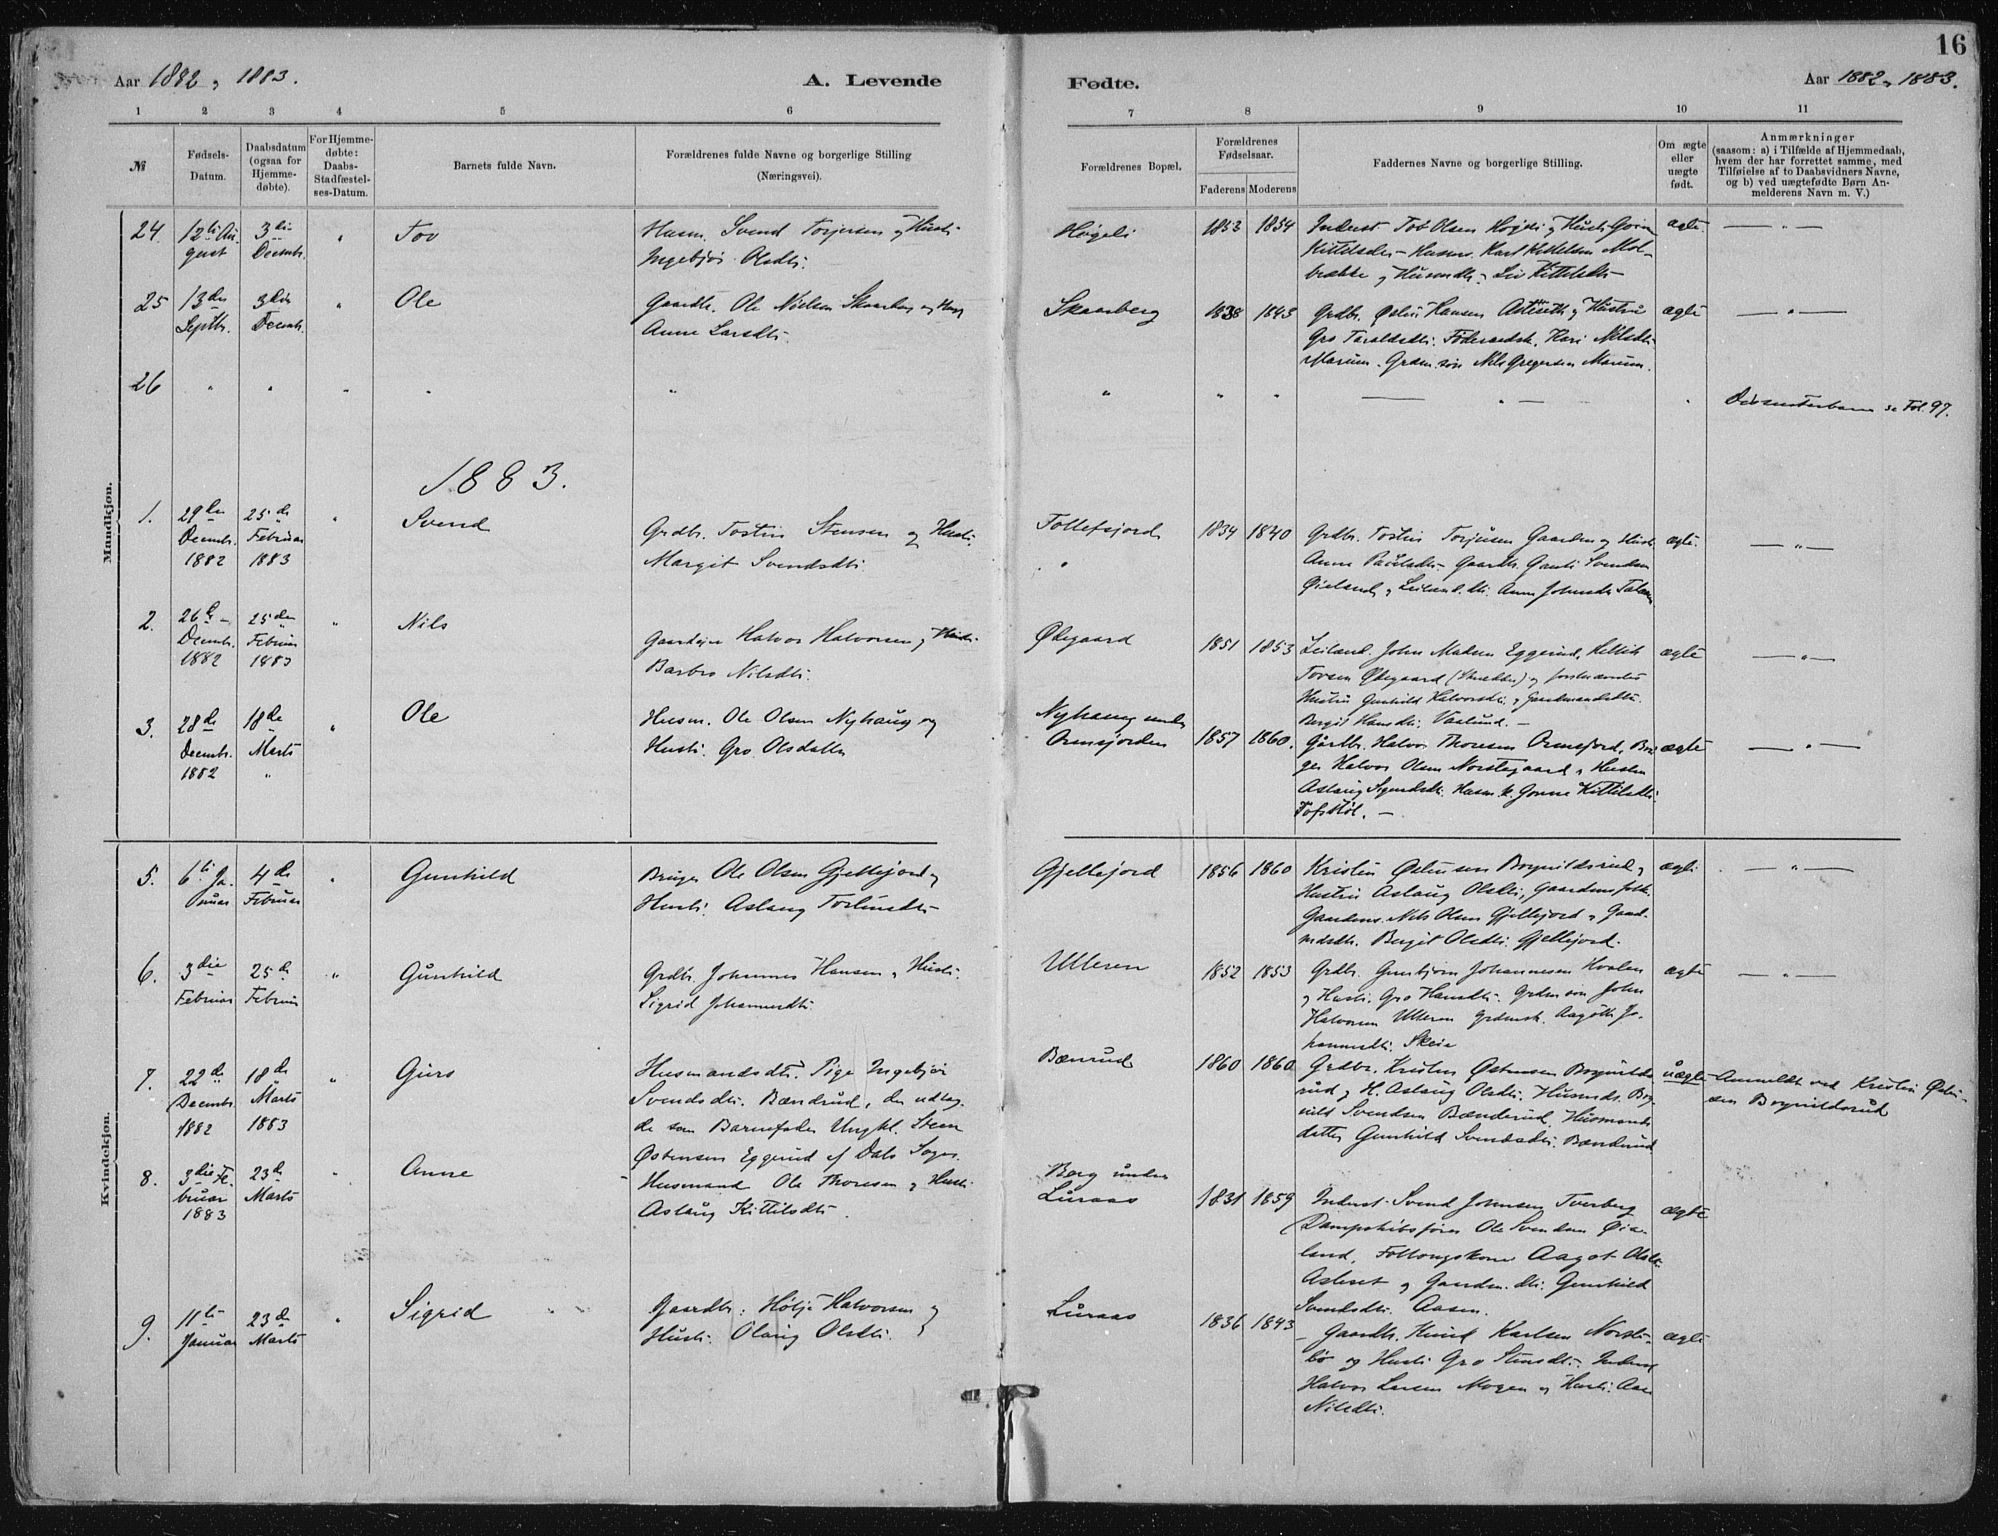 16
Aar 1882 og 1883.
A. Levende
Fødte.
Aar 1882 og 1883.
1 2 3 4 5 6
7 8 9 10 11
№
Fødsels-
Datum.
Daabsdatum
(ogsaa for
Hjemme-
døbte).
For Hjemme-
døbte:
Daabs-
Stadfæstel-
ses-Datum.
Barnets fulde Navn.
Forældrenes fulde Navne og borgerlige Stilling
(Næringsvei).
Forældrenes Bopæl.
Forældrenes
Fødselsaar.
Faderens Moderens
Faddernes Navne og borgerlige Stilling.
Om ægte
eller
uægte
født.
Anmærkninger
(saasom: a) i Tilfælde af Hjemmedaab,
hvem der har forrettet samme, med
Tilføielse af to Daabsvidners Navne,
og b) ved uægtefødte Børn An-
melderens Navn m. V.)
Mandkjøn.
24. 12te Au-
gust
3die
Decmbr.
"
Tov
Husm. Svend Torjersen og Hustr.
Ingebjør Olsdtr.
Høgeli
1853 1854
Inderst Tov Olsen Høgeli og Hustr. Gro
Kittilsdtr.
Husm. Karl Kittelsen
ægte
— " —
25 13de
Septbr.
3die
Decmbr.
"
Ole
Gaardbr. Ole Nielsen Skaarberg og
Anne Larsdtr.
Skaarberg
1838 1843
Grdbr. Østen Hansen og Hustru
Gro Taraldsdtr. Føderaadsk. Kari Nilsdtr.
Marum. Grdm. søn Nils Gregersen Marum.
ægte
— " —
26 " " " " "
" " " — " — "
Dissenterbarn se Fol. 97.
1883.
1. 29de
Decmbr.
1882
25de
Februar
1883
"
Svend
Grdbr. Tostin Stensen og Hustr.
Margit Svendsdtr.
Follefsjord
"
1834 1840
Grdbr. Tostin Torjusen Gaarden og Hustr.
Anne
Øieland, Anne Johnsdtr.
ægte.
— " —
2. 26de
Decmbr.
1882
25de
Februar
1883
"
Nils
Gaardeier Halvor Halvorsen og Hustr.
Barbro Nilsdtr.
Ødegaard
1851 1853
Leiland. John Madsen Eggerud, Kittil
Torsen Ødegaard (Skrædder) og
Hustru Gunhild Halvorsdtr. og
Bergit Hansdtr. Vaalund. —
ægte
— " —
3. 28de
Decembr.
1882
18de
Marts
"
"
Ole
Husm. Ole Olsen Nyhaug og
Hustr. Gro Olsdatter
Nyhaug under
Ormsjorden
1857 1860.
Gårdbr. Halvor Thoresen Ormsjord, Bru-
ger Halvor Olsen Norstegaard og Hustru
Aslaug Husm. k. Gonne Kittilsdtr.
ægte
— " —
Kvindekjøn.
5. 6te Ja-
nuar
4de
Februar
"
Gunhild
Bruger Ole Olsen Gjellejord og
Hustr. Aslaug
Gjellejord
1856 1860
Kristen Østensen Boqvildsrud og
Hustru Aslaug Olsdtr., Gaardmsfolk.
Gaardms. Nils Olsen Gjellejord og Gaard-
mdsdtr. Bergit Olsdtr. Gjellejord.
ægte
— " —
6. 3die
Februar
25de
Februar
"
Gunhild
Grdbr. Johannes Hansen og Hustr.
Sigrid Johannesdtr.
Ulleren
1852 1853
Grdbr. Gunbjørn Johannesen Hvalen
og Hustr. Gro Hansdtr. Grdm. søn John
Halvorsen Ulleren Aagoth Jo-
hannesdtr. Skeie
ægte
— " —
7. 22de
Decembr.
1882
18de
Marts
1883
"
Guro
Husmandsdtr. Pige Ingebjør
Svendsdtr. Bændrud, der udlag-
de som Barnefader Ungkl. Steen
Østensen Eggerud af Dals Sogn.
Bænrud
1860 1860
Grdbr. Kristen Østensen Boqvilds-
rud og H. Aslaug Olsdtr. Husmds.
Svendsen Bænderud, Husmands-
datter Gunhild Svendsdtr. Bændrud
uægte
Anmeldt ved Kristen Østen-
sen Boqvildsrud
8. 3die Fe-
bruar
1883
23de
Marts
"
Anne
Husmand Ole Thoresen og Hustr.
Aslaug Kittilsdtr.
Berg under
Luraas
1831 1859
Inderst Svend Johnsen Tverberg
Dampskibsfører Ole Svendsen Øie-
land, Aagot Olsdtr.
og Gaardm. dtr. Gunhild
Svendsdtr. Aasen.
ægte
9. 11te
Januar
23de
Marts
"
Sigrid
Gaardbr. Høljé Halvorsen og
Hustr. Olaug Olsdtr.
Luraas
1836 1843
Gaardbr. Knud Karlsen Norste-
bø og Hustr. Gro
Halvor Larsen Mogen og Hustr. Aase
Nilsdtr.
ægte